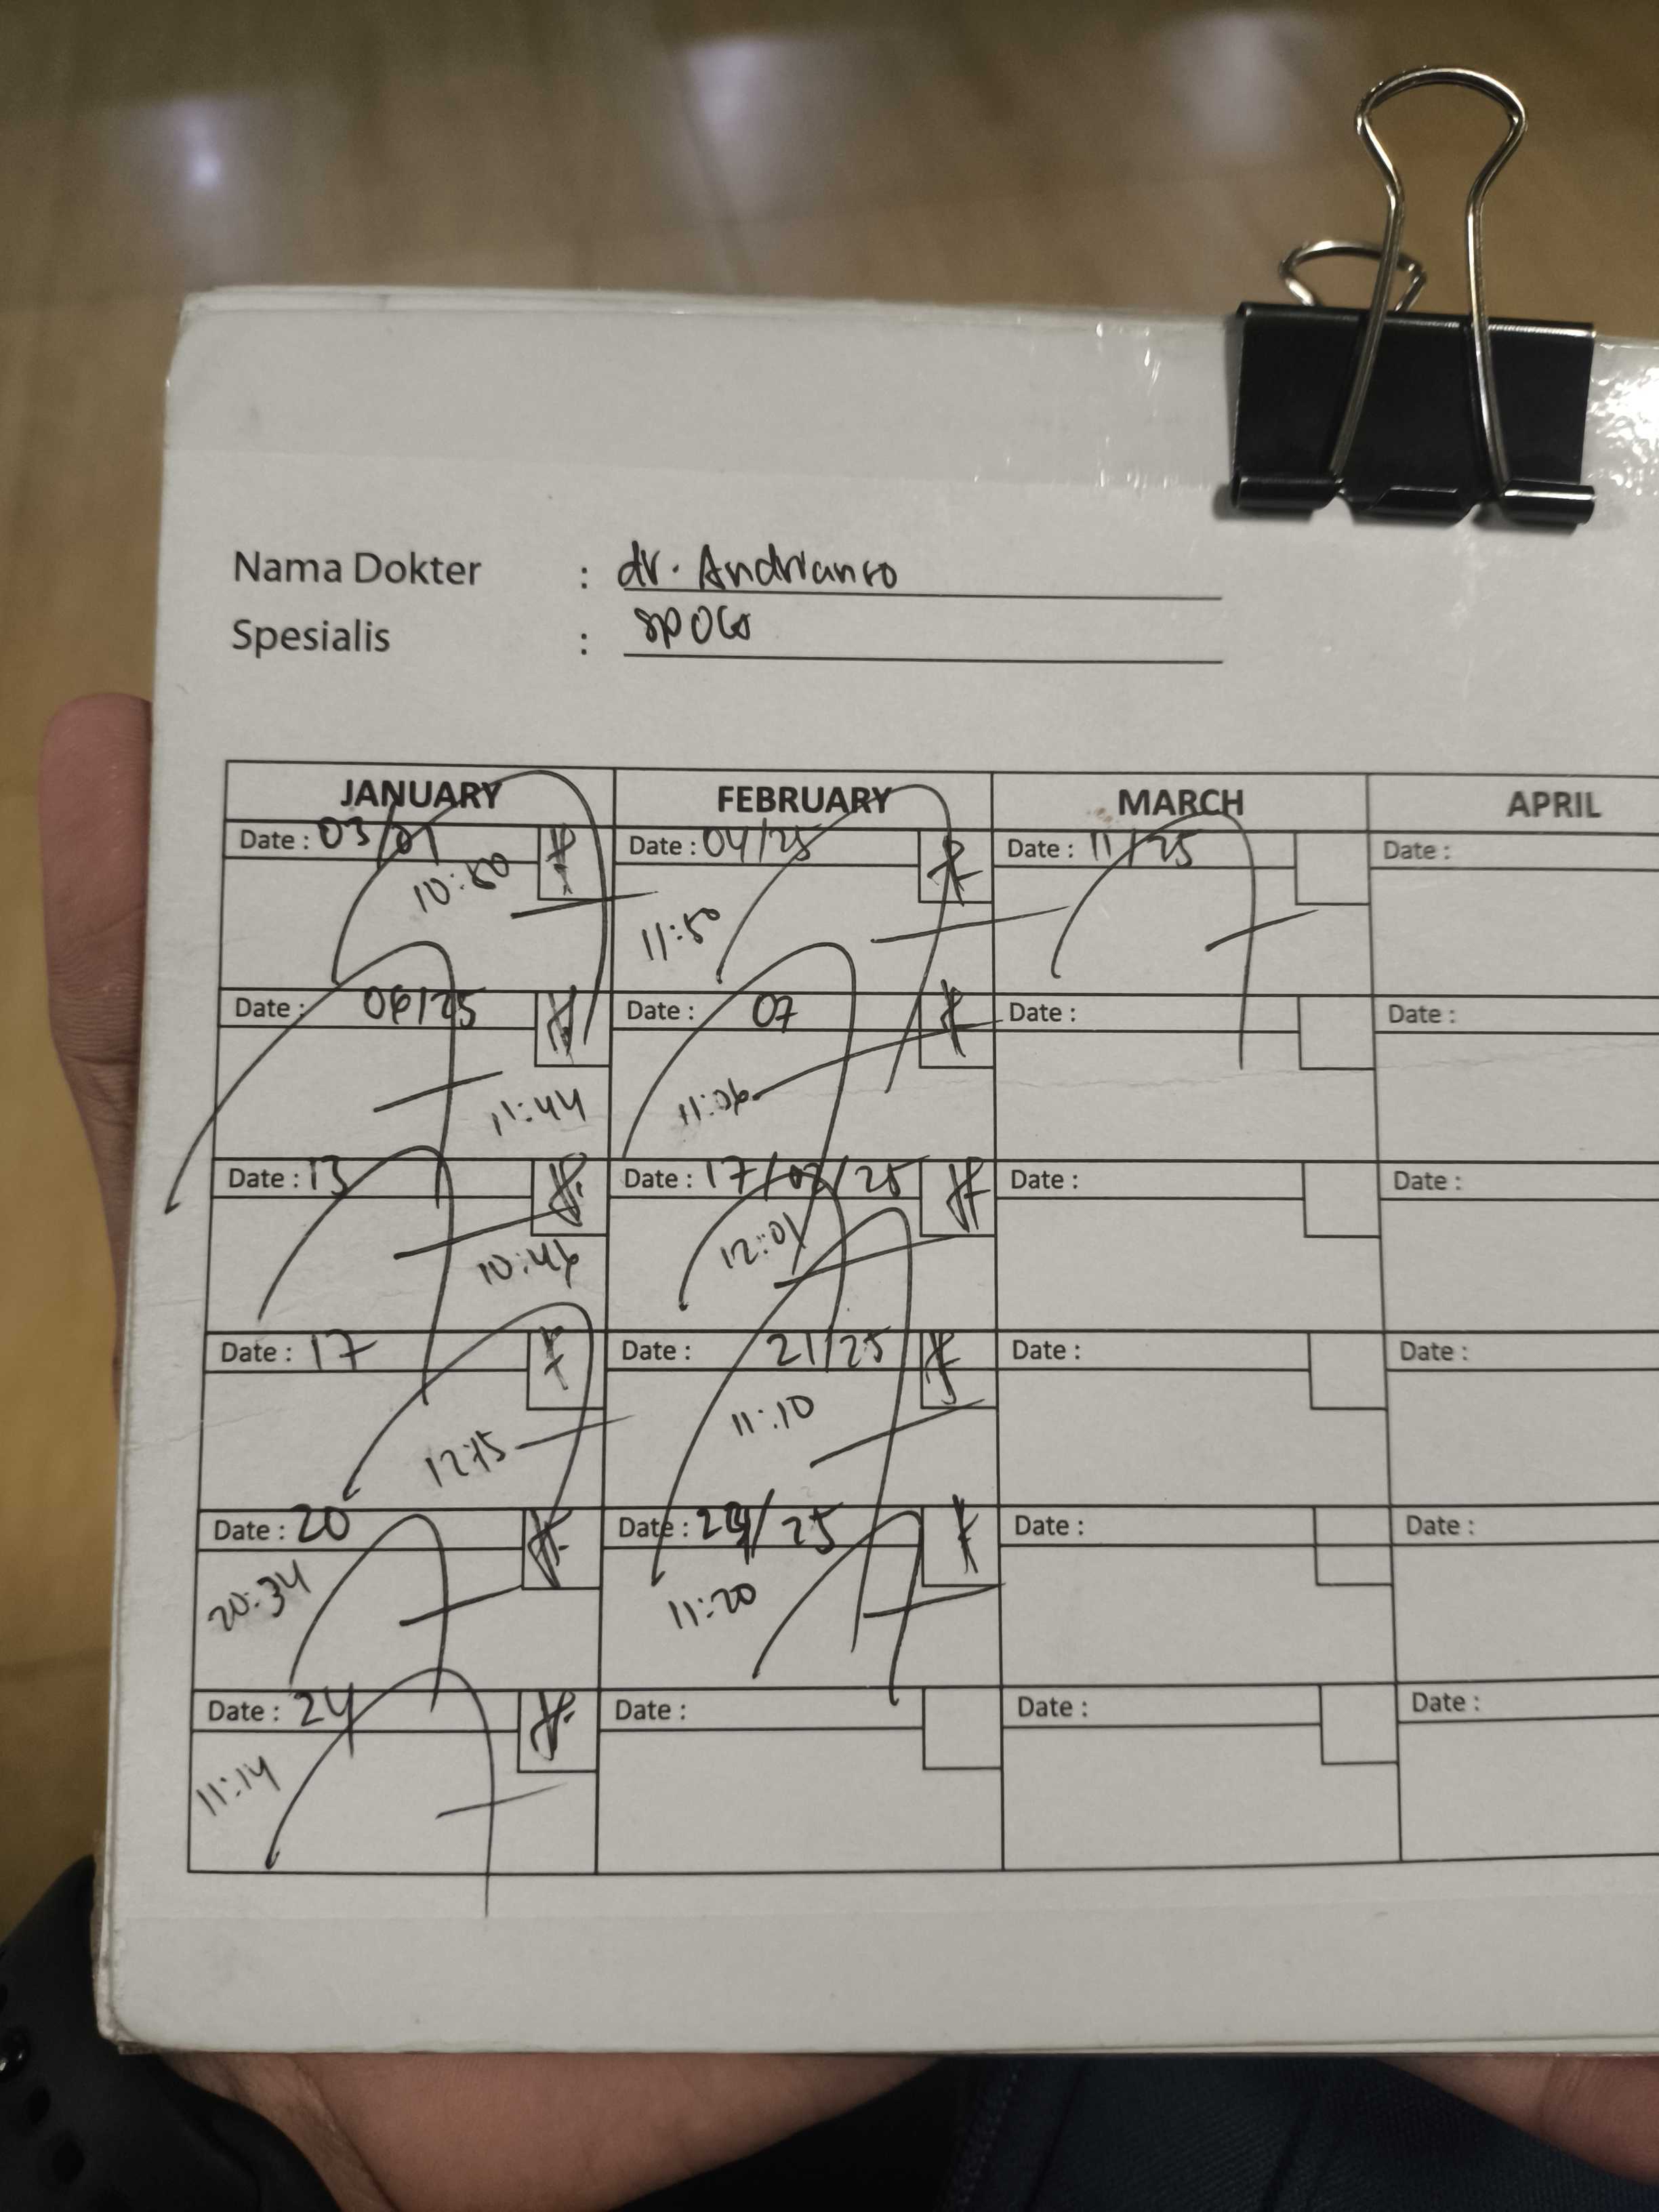 Nama Dokter : dr. Andrianto
Spesialis : SPOG
JANUARY FEBRUARY MARCH APRIL
Date : 03/01 Date : 04/25 Date : 11/25 Date :
10:50 11:50
Date : 06/25 Date : 07 Date : Date :
11:44 11:06
Date : 13 Date : 17/02/25 Date : Date :
10:46 12:01
Date : 17 Date : 21/25 Date : Date :
12:15 11:10
Date : 20 Date : 24/25 Date : Date :
20:34 11:20
Date : 24 Date : Date : Date :
11:14